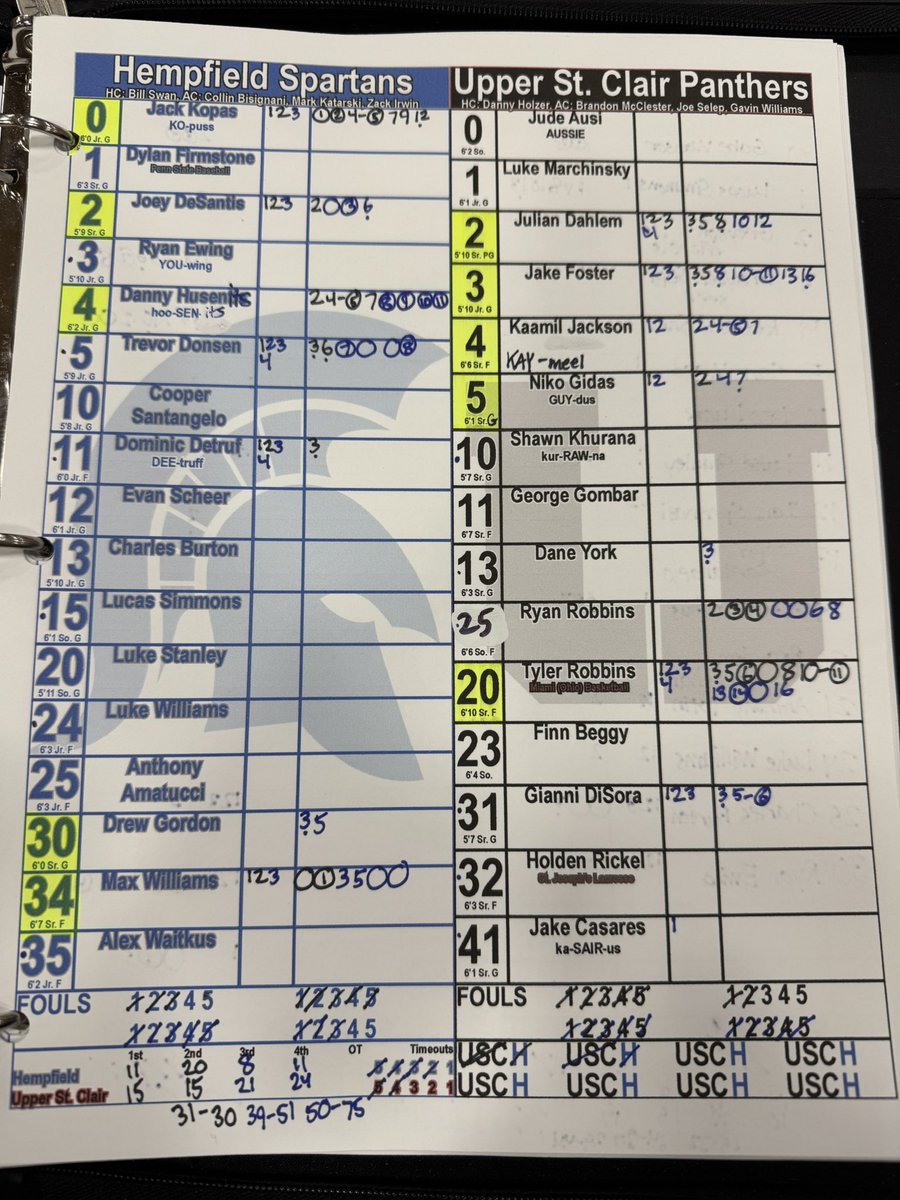 Hempfield Spartans
HC: Bill Swan, AC: Collin Bisignani, Mark Katarski, Zack Irwin
0 Jack Kopas 123 ①②4-⑤ 7 9 12
6'0 Jr. G KO-puss
1 Dylan Firmstone
6'3 Sr. G Penn State Baseball
2 Joey DeSantis 123 2 0 ③ 6
5'9 Sr. G
3 Ryan Ewing
5'10 Jr. G YOU-wing
4 Danny Husenits 24-⑥ 7 ⑧ ⑨ ⑩ ⑪
6'2 Jr. G hoo-SEN-its
5 Trevor Donsen 123 3 6 ⑦ 0 0 ⑧
5'9 Jr. G 4
10 Cooper
5'8 Jr. G Santangelo
11 Dominic Detruf 123 3
6'0 Jr. F DEE-truff 4
12 Evan Scheer
6'1 Jr. G
13 Charles Burton
5'10 Jr. G
15 Lucas Simmons
6'1 So. G
20 Luke Stanley
5'11 So. G
24 Luke Williams
6'3 Jr. F
25 Anthony
6'3 Jr. F Amatucci
30 Drew Gordon 3 5
6'0 Sr. G
34 Max Williams 123 0 ① 3 5 0 0
6'7 Sr. F
35 Alex Waitkus
6'2 Jr. F
FOULS 1 2 3 4 5 1 2 3 4 5
1 2 3 4 5 1 2 3 4 5
1st 2nd 3rd 4th OT Timeouts
Hempfield 11 20 8 11 5 4 3 2 1
Upper St. Clair 15 15 21 24 5 4 3 2 1
31-30 39-51 50-75
Upper St. Clair Panthers
HC: Danny Holzer, AC: Brandon McClester, Joe Selep, Gavin Williams
0 Jude Ausi
6'2 So. AUSSIE
1 Luke Marchinsky
6'1 Jr. G
2 Julian Dahlem 123 3 5 8 10 12
5'10 Sr. PG 4
3 Jake Foster 123 3 5 8 10-⑪ 13 16
5'10 Jr. G
4 Kaamil Jackson 12 24-⑥ 7
6'6 Sr. F KAY-meel
5 Niko Gidas 12 2 4 7
6'1 Sr. G GUY-dus
10 Shawn Khurana
5'7 Sr. G kur-RAW-na
11 George Gombar
6'7 Sr. F
13 Dane York 3
6'3 Sr. G
25 Ryan Robbins 2 ③ ④ 0 0 6 8
6'6 So. F
20 Tyler Robbins 123 3 5 ⑥ 0 8 10-⑪
6'10 Sr. F Miami (Ohio) Basketball 4 13 ⑭ 0 16
23 Finn Beggy
6'4 So.
31 Gianni DiSora 123 3 5-⑥
5'7 Sr. G
32 Holden Rickel
6'3 Sr. F St. Joseph's Lacrosse
41 Jake Casares 1
6'1 Sr. G ka-SAIR-us
FOULS 1 2 3 4 5 1 2 3 4 5
1 2 3 4 5 1 2 3 4 5
USCH USCH USCH USCH
USCH USCH USCH USCH